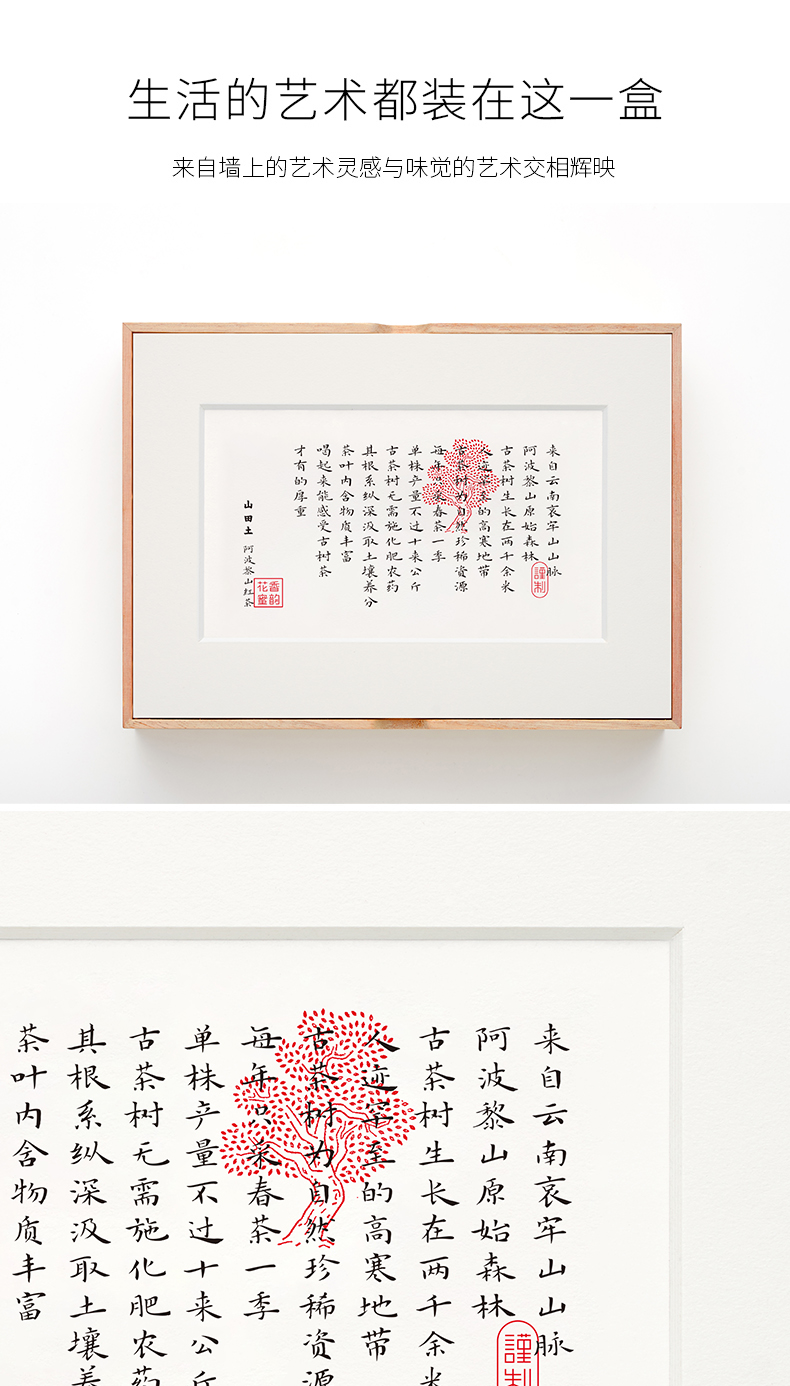 生活的艺术都装在这一盒
来自墙上的艺术灵感与味觉的艺术交相辉映
来自云南哀牢山山脉
阿波黎山原始森林
古茶树生长在两千余米
人迹罕至的高寒地带
古茶树为自然珍稀资源
每年只采春茶一季
单株产量不过十来公斤
古茶树无需施化肥农药
其根系纵深汲取土壤养分
茶叶内含物质丰富
喝起来能感受古树茶
才有的厚重
山田土 阿波黎山红茶
香韵
花蜜
謹制
来自云南哀牢山山脉
阿波黎山原始森林
古茶树生长在两千余米
人迹罕至的高寒地带
古茶树为自然珍稀资源
每年只采春茶一季
单株产量不过十来公斤
古茶树无需施化肥农药
其根系纵深汲取土壤养
茶叶内含物质丰富
謹制